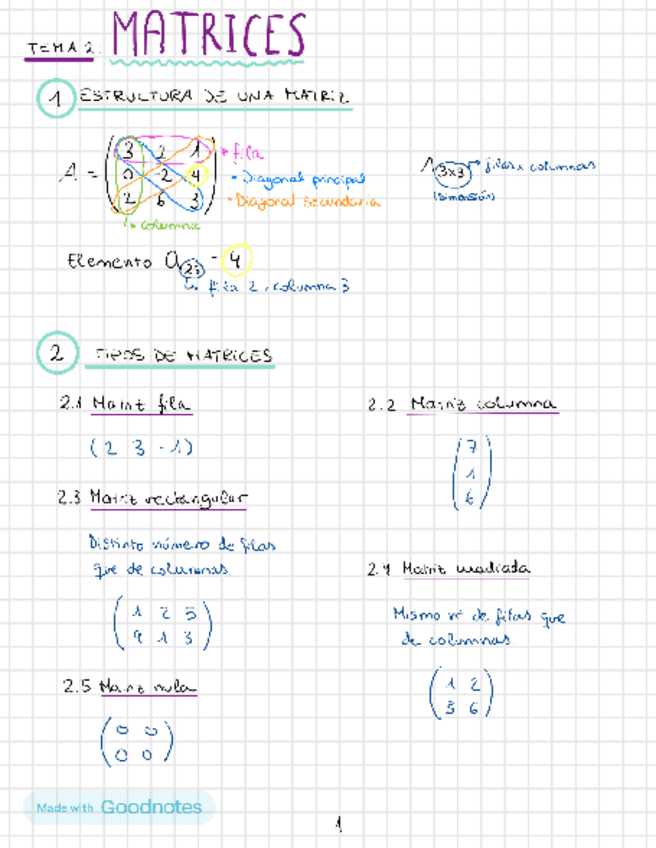 TEMA 2. MATRICES
1 ESTRUCTURA DE UNA MATRIZ
A = (3 2 1
0 -2 4
2 6 3)
fila
• Diagonal principal
• Diagonal secundaria
columna
3x3 filas x columnas
Dimensión
Elemento a23 = 4
fila 2, columna 3
2 TIPOS DE MATRICES
2.1 Matriz fila
(2 3 -1)
2.2 Matriz columna
(7
1
6)
2.3 Matriz rectangular
Distinto número de filas
que de columnas
(1 2 5
9 1 3)
2.4 Matriz cuadrada
Mismo nº de filas que
de columnas
(1 2
3 6)
2.5 Matriz nula
(0 0
0 0)
Made with Goodnotes
1